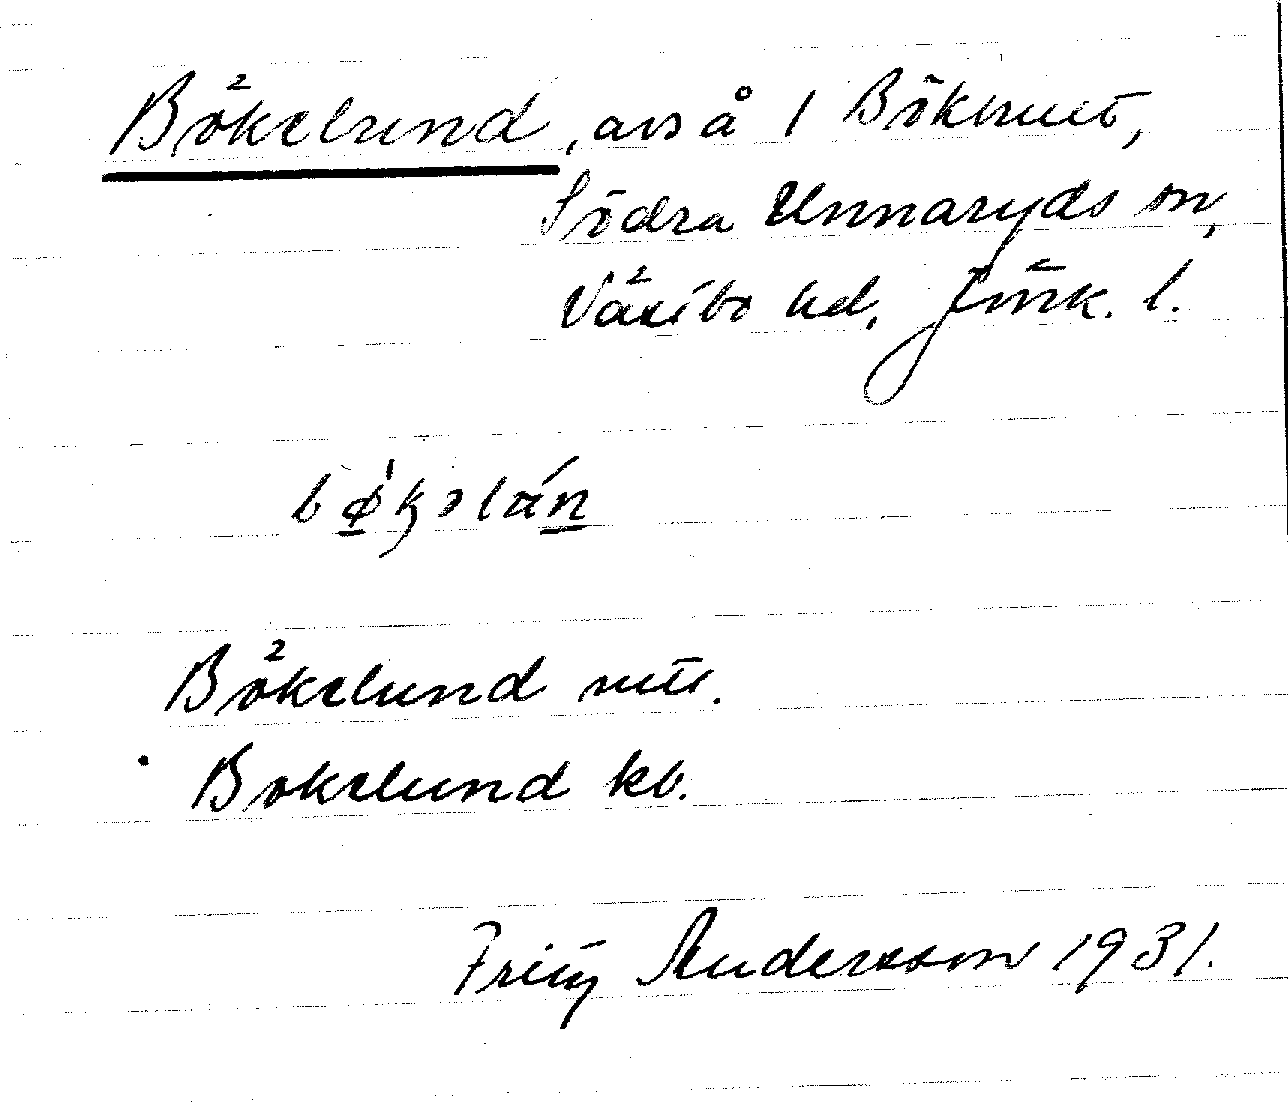 Bökelund, avs å 1 Bökhult,
Södra Unnaryds sn,
Västbo hd, Jönk. l.
Bökelund mtl.
Bökelund kb.
Fritz Andersson 1931.